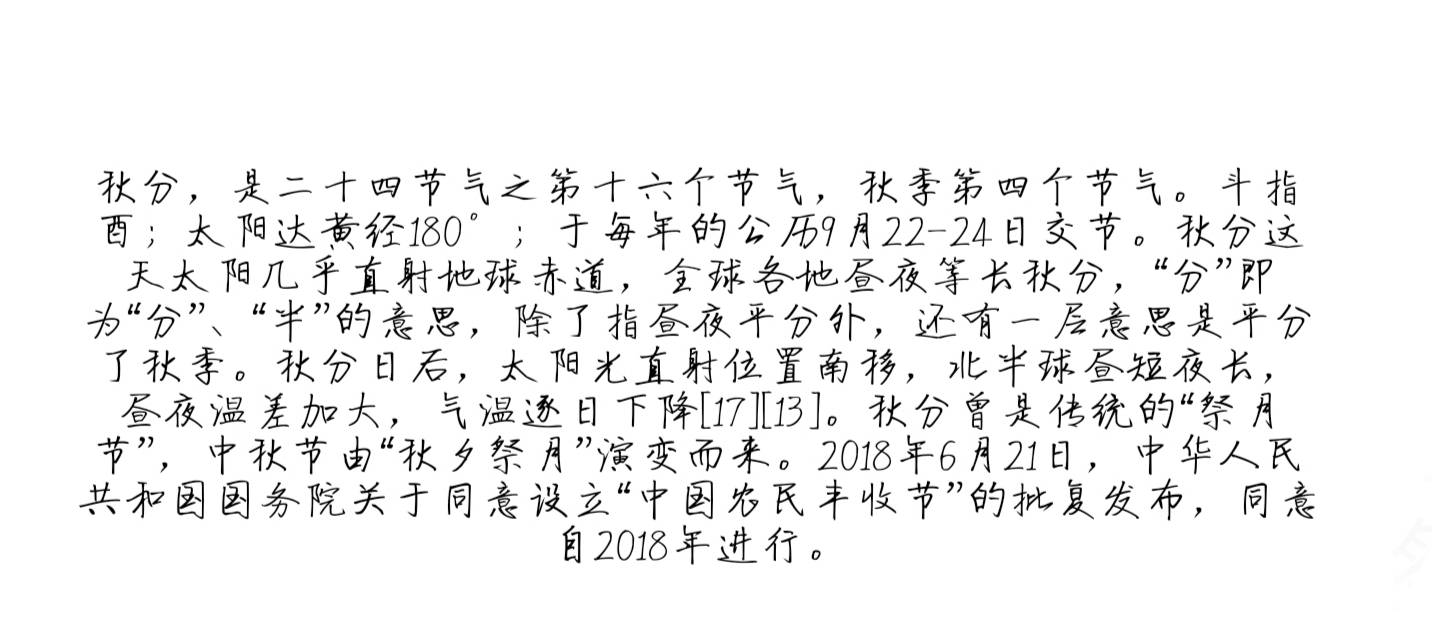 秋分，是二十四节气之第十六个节气，秋季第四个节气。斗指
酉；太阳达黄经180°；于每年的公历9月22-24日交节。秋分这
天太阳几乎直射地球赤道，全球各地昼夜等长秋分，“分”即
为“分”、“半”的意思，除了指昼夜平分外，还有一层意思是平分
了秋季。秋分日后，太阳光直射位置南移，北半球昼短夜长，
昼夜温差加大，气温逐日下降[17][13]。秋分曾是传统的“祭月
节”，中秋节由“秋夕祭月”演变而来。2018年6月21日，中华人民
共和国国务院关于同意设立“中国农民丰收节”的批复发布，同意
自2018年进行。